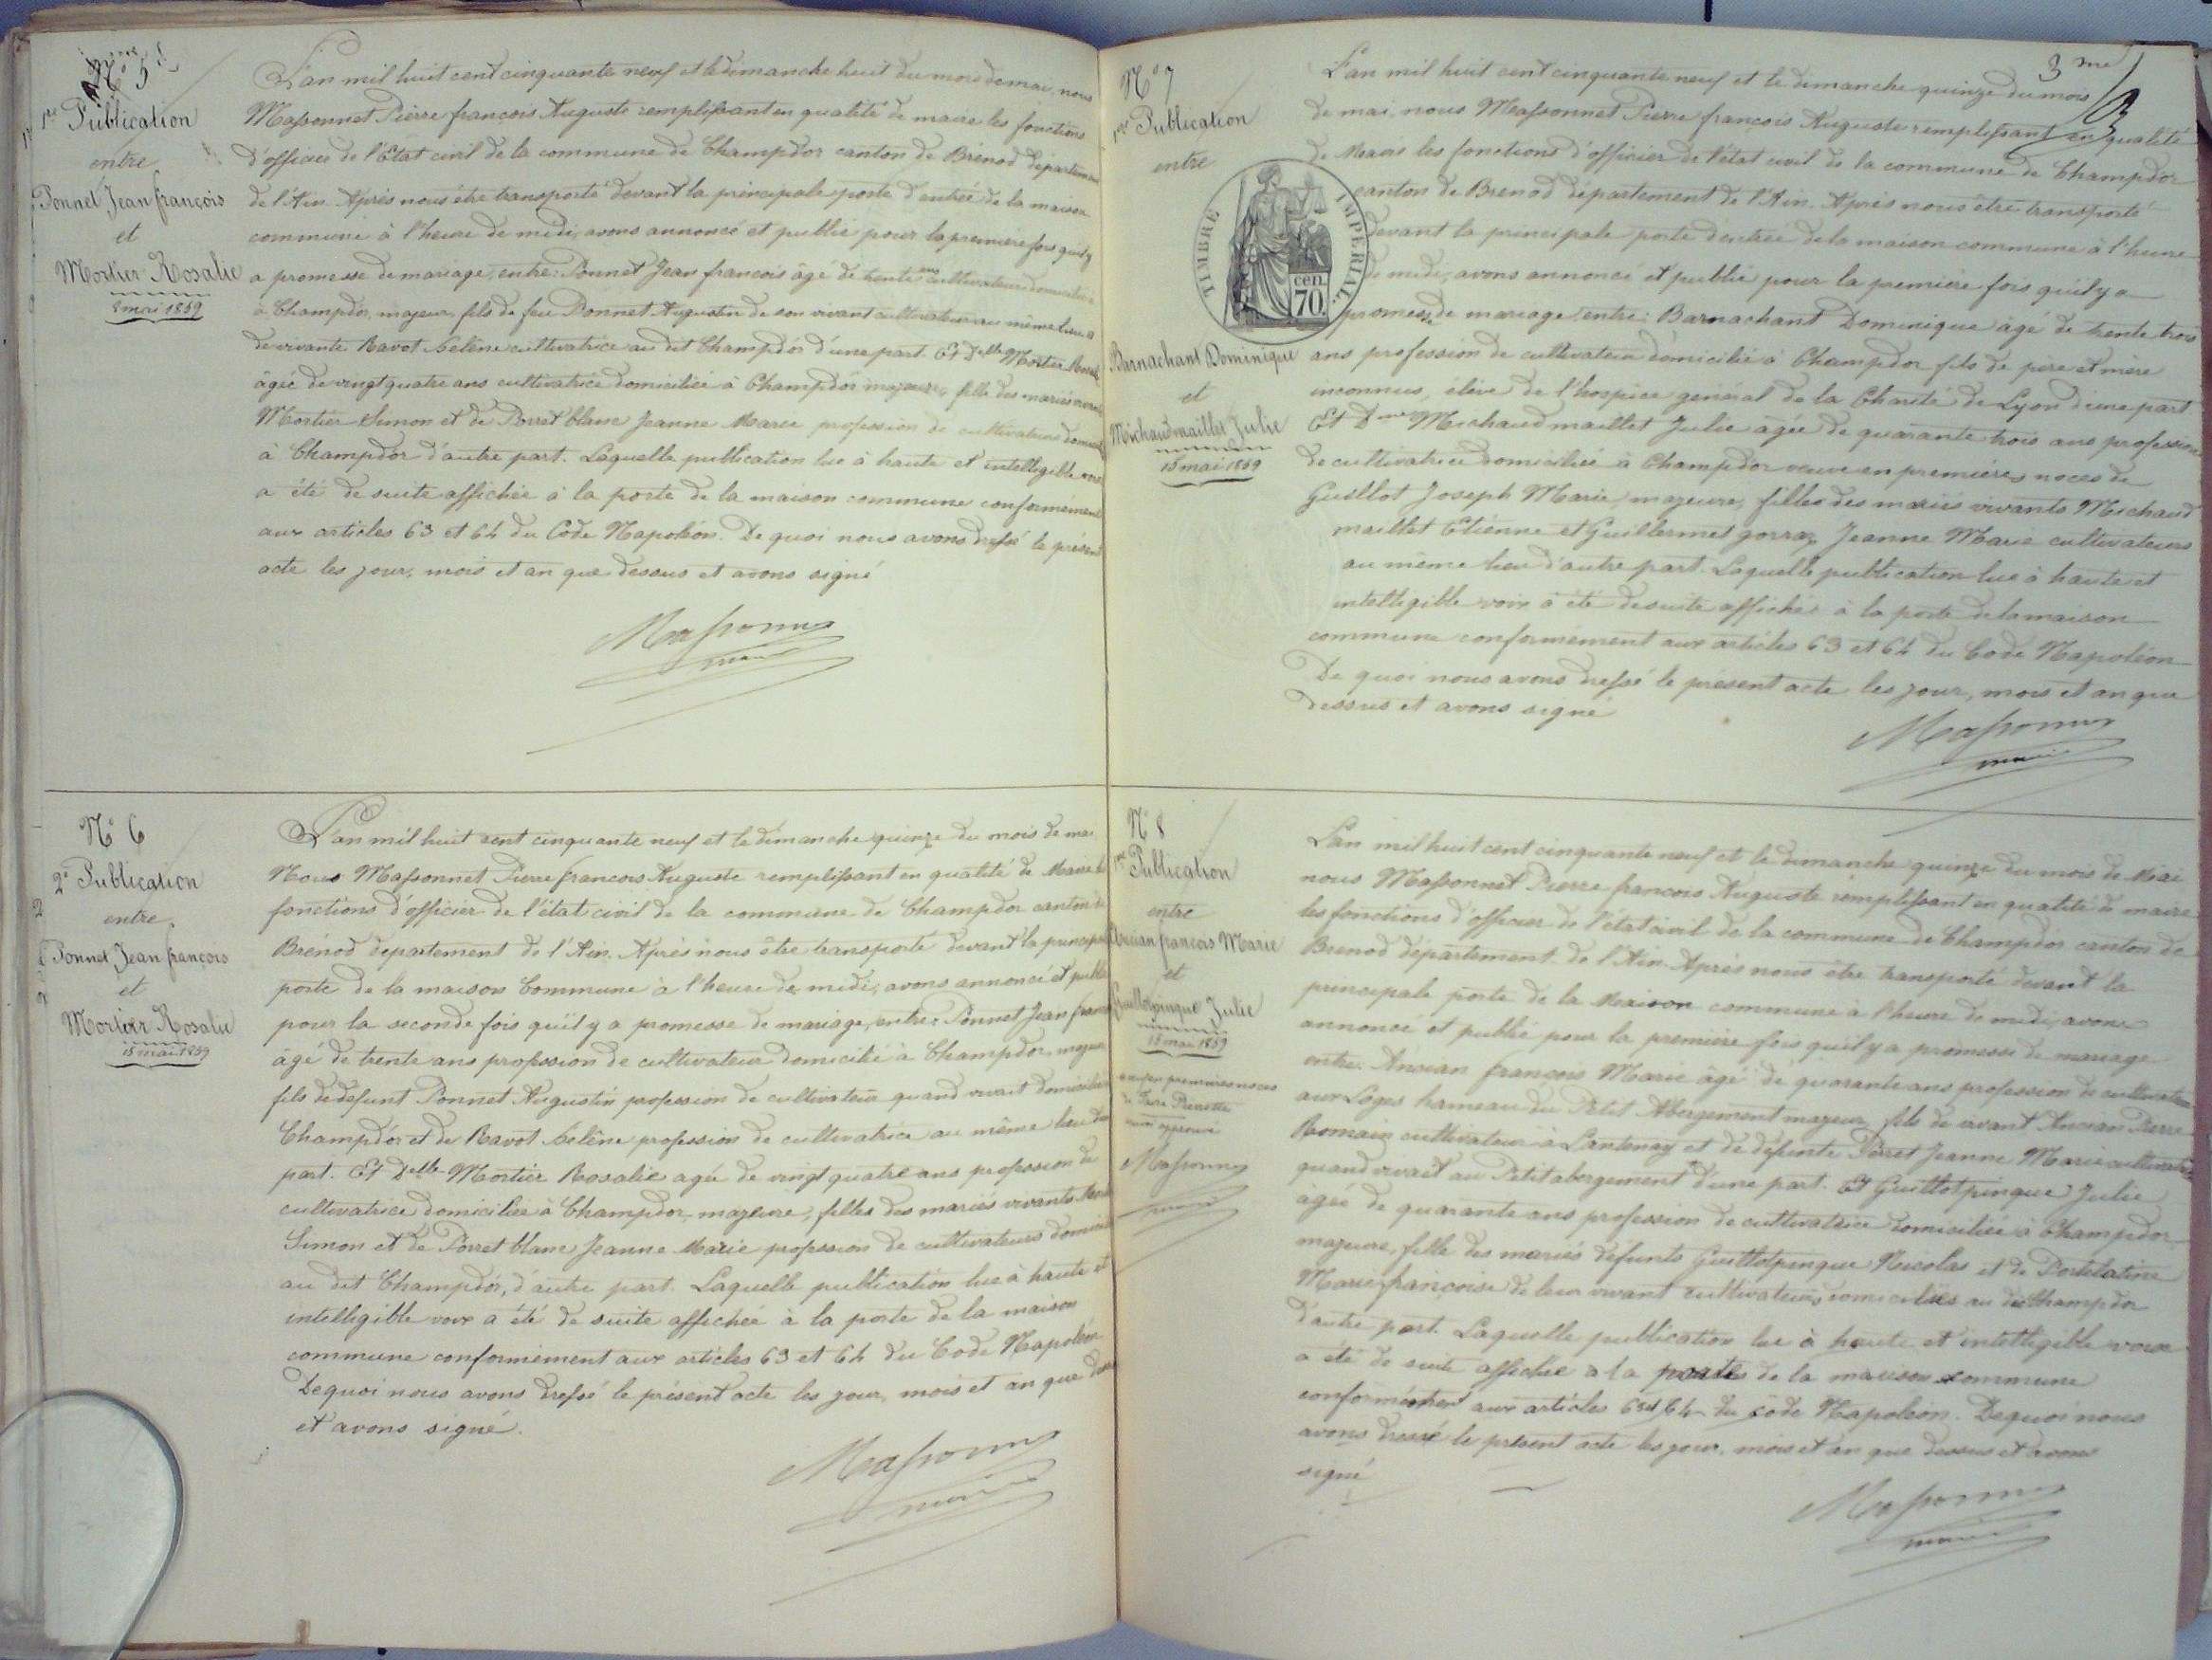 N° 5
1re Publication
entre
Ponnet Jean françois
et
Mortier Rosalie
8 mai 1859
L'an mil huit cent cinquante neuf et le dimanche huit du mois de mai, nous
Massonnet Pierre françois Auguste remplissant en qualité de maire les fonctions
d'officier de l'Etat civil de la commune de Champdor canton de Brénod département
de l'Ain. Après nous être transporté devant la principale porte d'entrée de la maison
commune à l'heure de midi, avons annoncé et publié pour la première fois qu'il y
a promesse de mariage, entre: Ponnet Jean francois âgé de trente ans cultivateur domicilié
à Champdor, majeur, fils de feu Ponnet Augustin de son vivant cultivateur au même lieu et
de vivante Ravot Selène cultivatrice au dit Champdor d'une part. Et Delle Mortier Rosalie
âgée de vingt quatre ans cultivatrice domiciliée à Champdor majeure, fille des mariés
Mortier Simon et de Porret blanc Jeanne Marie profession de cultivateurs
à Champdor d'autre part. Laquelle publication lue à haute et intelligible voix
a été de suite affichée à la porte de la maison commune conformément
aux articles 63 et 64 du Code Napoléon. De quoi nous avons dressé le présent
acte les jour, mois et an que dessus et avons signé
Massonnet
maire
N° 6
2e Publication
entre
Ponnet Jean françois
et
Mortier Rosalie
15 mai 1859
L'an mil huit cent cinquante neuf et le dimanche quinze du mois de mai
Nous Massonnet Pierre francois Auguste remplissant en qualité de Maire les
fonctions d'officier de l'état civil de la commune de Champdor canton de
Brénod département de l'Ain. Après nous être transporté devant la principale
porte de la maison Commune à l'heure de midi, avons annoncé et publié
pour la seconde fois qu'il y a promesse de mariage, entre: Ponnet Jean francois
âgé de trente ans profession de cultivateur domicilié à Champdor, majeur
fils de defunt Ponnet Augustin profession de cultivateur quand vivait domicilié
Champdor et de Ravot Selène profession de cultivatrice au même lieu d'une
part. Et Delle Mortier Rosalie agée de vingt quatre ans profession de
cultivatrice domiciliée à Champdor, majeure, filles des mariés vivants
Simon et de Porret blanc Jeanne Marie profession de cultivateurs
au dit Champdor, d'autre part. Laquelle publication lue à haute et
intelligible voix a été de suite affichée à la porte de la maison
commune conformément aux articles 63 et 64 du Code Napoléon
De quoi nous avons dressé le présent acte les jour, mois et an que dessus
et avons signé.
Massonnet
maire
3me
N° 7
1re Publication
entre
TIMBRE IMPERIAL
cen.
70.
Barnachant Dominique
et
Michaud maillet Julie
15 mai 1859
L'an mil huit cent cinquante neuf et le dimanche quinze du mois
de mai, nous Massonnet Pierre francois Auguste remplissant en qualité
de Maire les fonctions d'officier de l'état civil de la commune de Champdor
canton de Brénod département de l'Ain. Après nous être transporté
devant la principale porte d'entrée de la maison commune à l'heure
de midi, avons annoncé et publié pour la première fois qu'il y a
promesse de mariage entre: Barnachant Dominique âgé de trente trois
ans profession de cultivateur domicilié à Champdor fils de père et mère
inconnus, élève de l'hospice général de la Charité de Lyon d'une part
Et Dme Michaud maillet Julie âgée de quarante trois ans profession
de cultivatrice domiciliée à Champdor veuve en premières noces de
Guillot Joseph Marie, majeure, filles des mariés vivants Michaud
maillet Etienne et Guillermet gorraz Jeanne Marie cultivateurs
au même lieu d'autre part. Laquelle publication lue à haute et
intelligible voix à été de suite affichée à la porte de la maison
commune conformément aux articles 63 et 64 du Code Napoléon
De quoi nous avons dressé le présent acte les jour, mois et an que
dessus et avons signé
Massonnet
maire
N° 8
1re Publication
entre
Ancian francois Marie
et
Guillotpinque Julie
15 mai 1859
en premieres noces
Massonnet
maire
L'an mil huit cent cinquante neuf et le dimanche quinze du mois de Mai
nous Massonnet Pierre francois Auguste remplissant en qualité de maire
les fonctions d'officier de l'état civil de la commune de Champdor canton de
Brenod département de l'Ain. Après nous être transporté devant la
principale porte de la Maison commune à l'heure de midi, avons
annoncé et publié pour la premiere fois qu'il y a promesse de mariage
entre: Ancian françois Marie âgé de quarante ans profession de cultivateur
aux Loges hameau du Petit Abergement majeur, fils de vivant Ancian Pierre
Romain cultivateur à Lantenay et de défunte Perret Jeanne Marie cultivatrice
quand vivait au Petit abergement d'une part. Et Guillotpinque Julie
âgée de quarante ans profession de cultivatrice domiciliée à Champdor
majeure, fille des mariés défunts Guillotpinque Nicolas et de Portelatine
Marie françoise de leur vivant cultivateurs domiciliés au dit Champdor
d'autre part. Laquelle publication lue à haute et intelligible voix
a été de suite affichée a la porte de la maison commune
conformément aux articles 63 et 64 du code Napoléon. De quoi nous
avons dressé le présent acte les jour, mois et an que dessus et avons
signé
Massonnet
maire